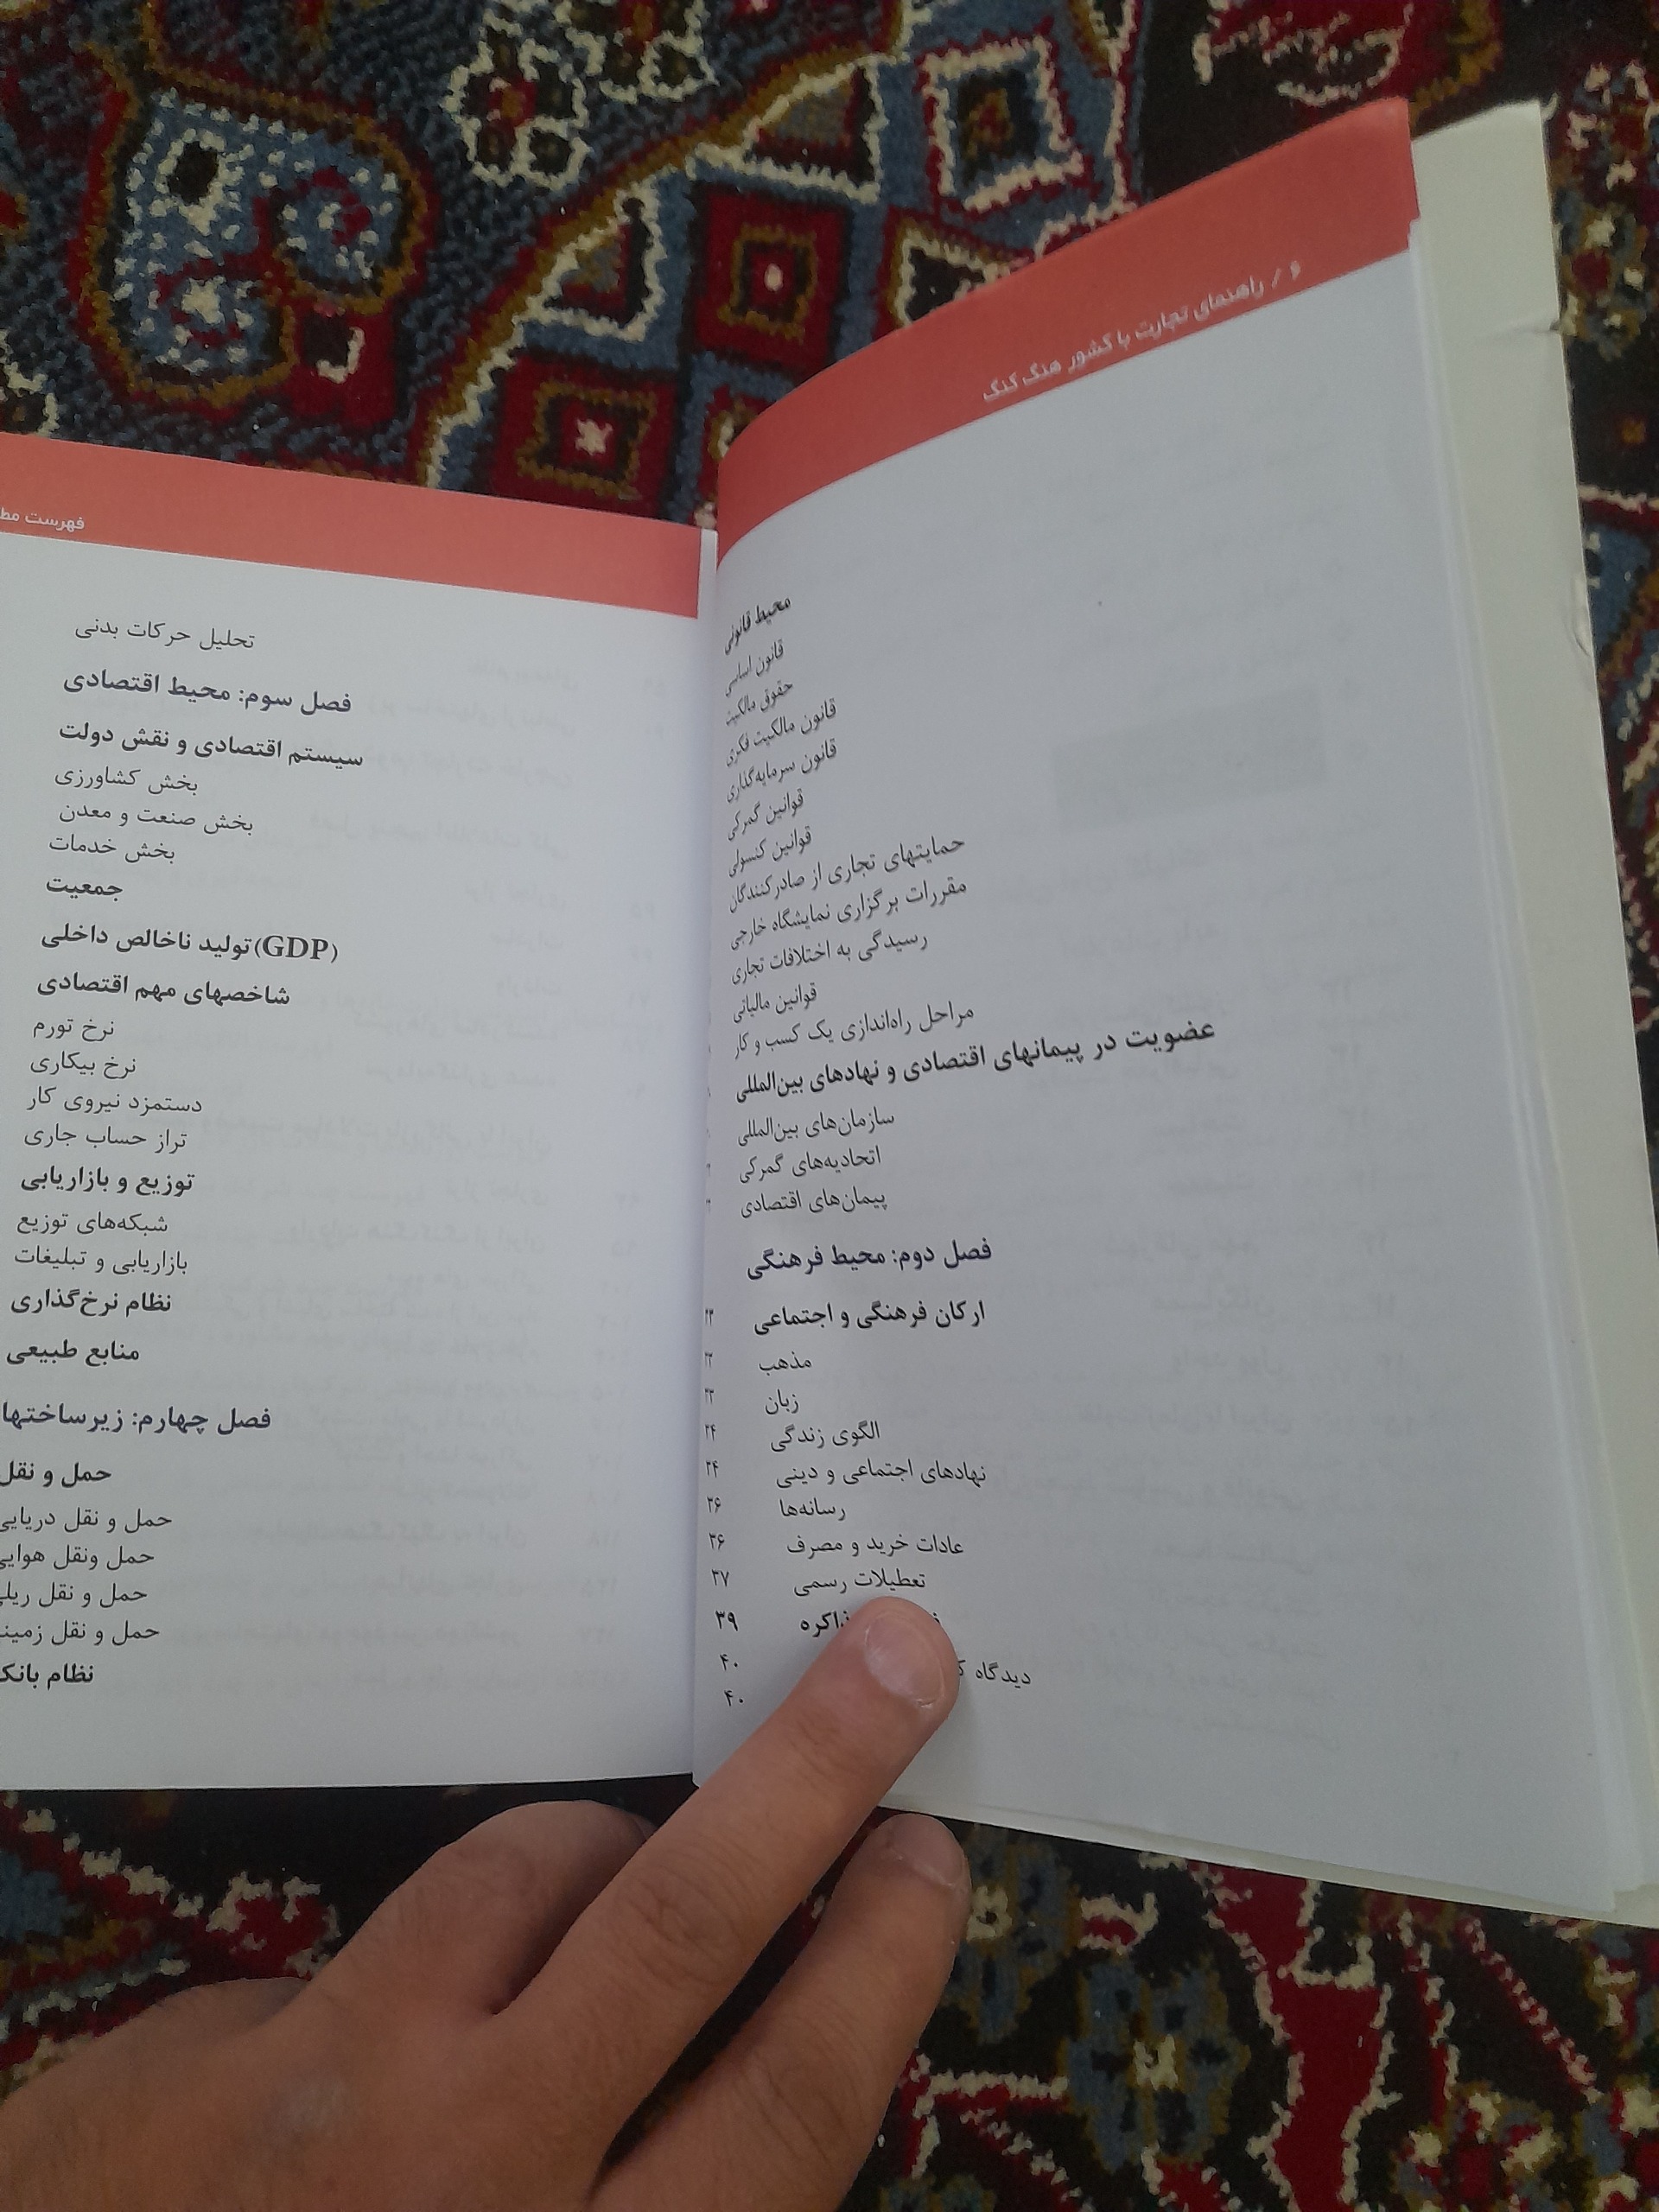 ۶ / راهنمای تجارت با کشور هنگ کنگ
محیط قانونی
قانون اساسی
حقوق مالکیت
قانون مالکیت فکری
قانون سرمایه‌گذاری
قوانین گمرکی
قوانین کنسولی
حمایتهای تجاری از صادرکنندگان
مقررات برگزاری نمایشگاه خارجی
رسیدگی به اختلافات تجاری
قوانین مالیاتی
مراحل راه‌اندازی یک کسب و کار
عضویت در پیمانهای اقتصادی و نهادهای بین‌المللی
سازمان‌های بین‌المللی
اتحادیه‌های گمرکی
پیمان‌های اقتصادی
فصل دوم: محیط فرهنگی
ارکان فرهنگی و اجتماعی ۳۳
مذهب ۳۳
زبان ۳۳
الگوی زندگی ۳۴
نهادهای اجتماعی و دینی ۳۴
رسانه‌ها ۳۶
عادات خرید و مصرف ۳۶
تعطیلات رسمی ۳۷
۳۹
دیدگاه ۴۰
۴۰
فهرست
تحلیل حرکات بدنی
فصل سوم: محیط اقتصادی
سیستم اقتصادی و نقش دولت
بخش کشاورزی
بخش صنعت و معدن
بخش خدمات
جمعیت
تولید ناخالص داخلی(GDP)
شاخصهای مهم اقتصادی
نرخ تورم
نرخ بیکاری
دستمزد نیروی کار
تراز حساب جاری
توزیع و بازاریابی
شبکه‌های توزیع
بازاریابی و تبلیغات
نظام نرخ‌گذاری
منابع طبیعی
فصل چهارم: زیرساختها
حمل و نقل
حمل و نقل دریایی
حمل ونقل هوایی
حمل و نقل ریلی
حمل و نقل زمینی
نظام بانک